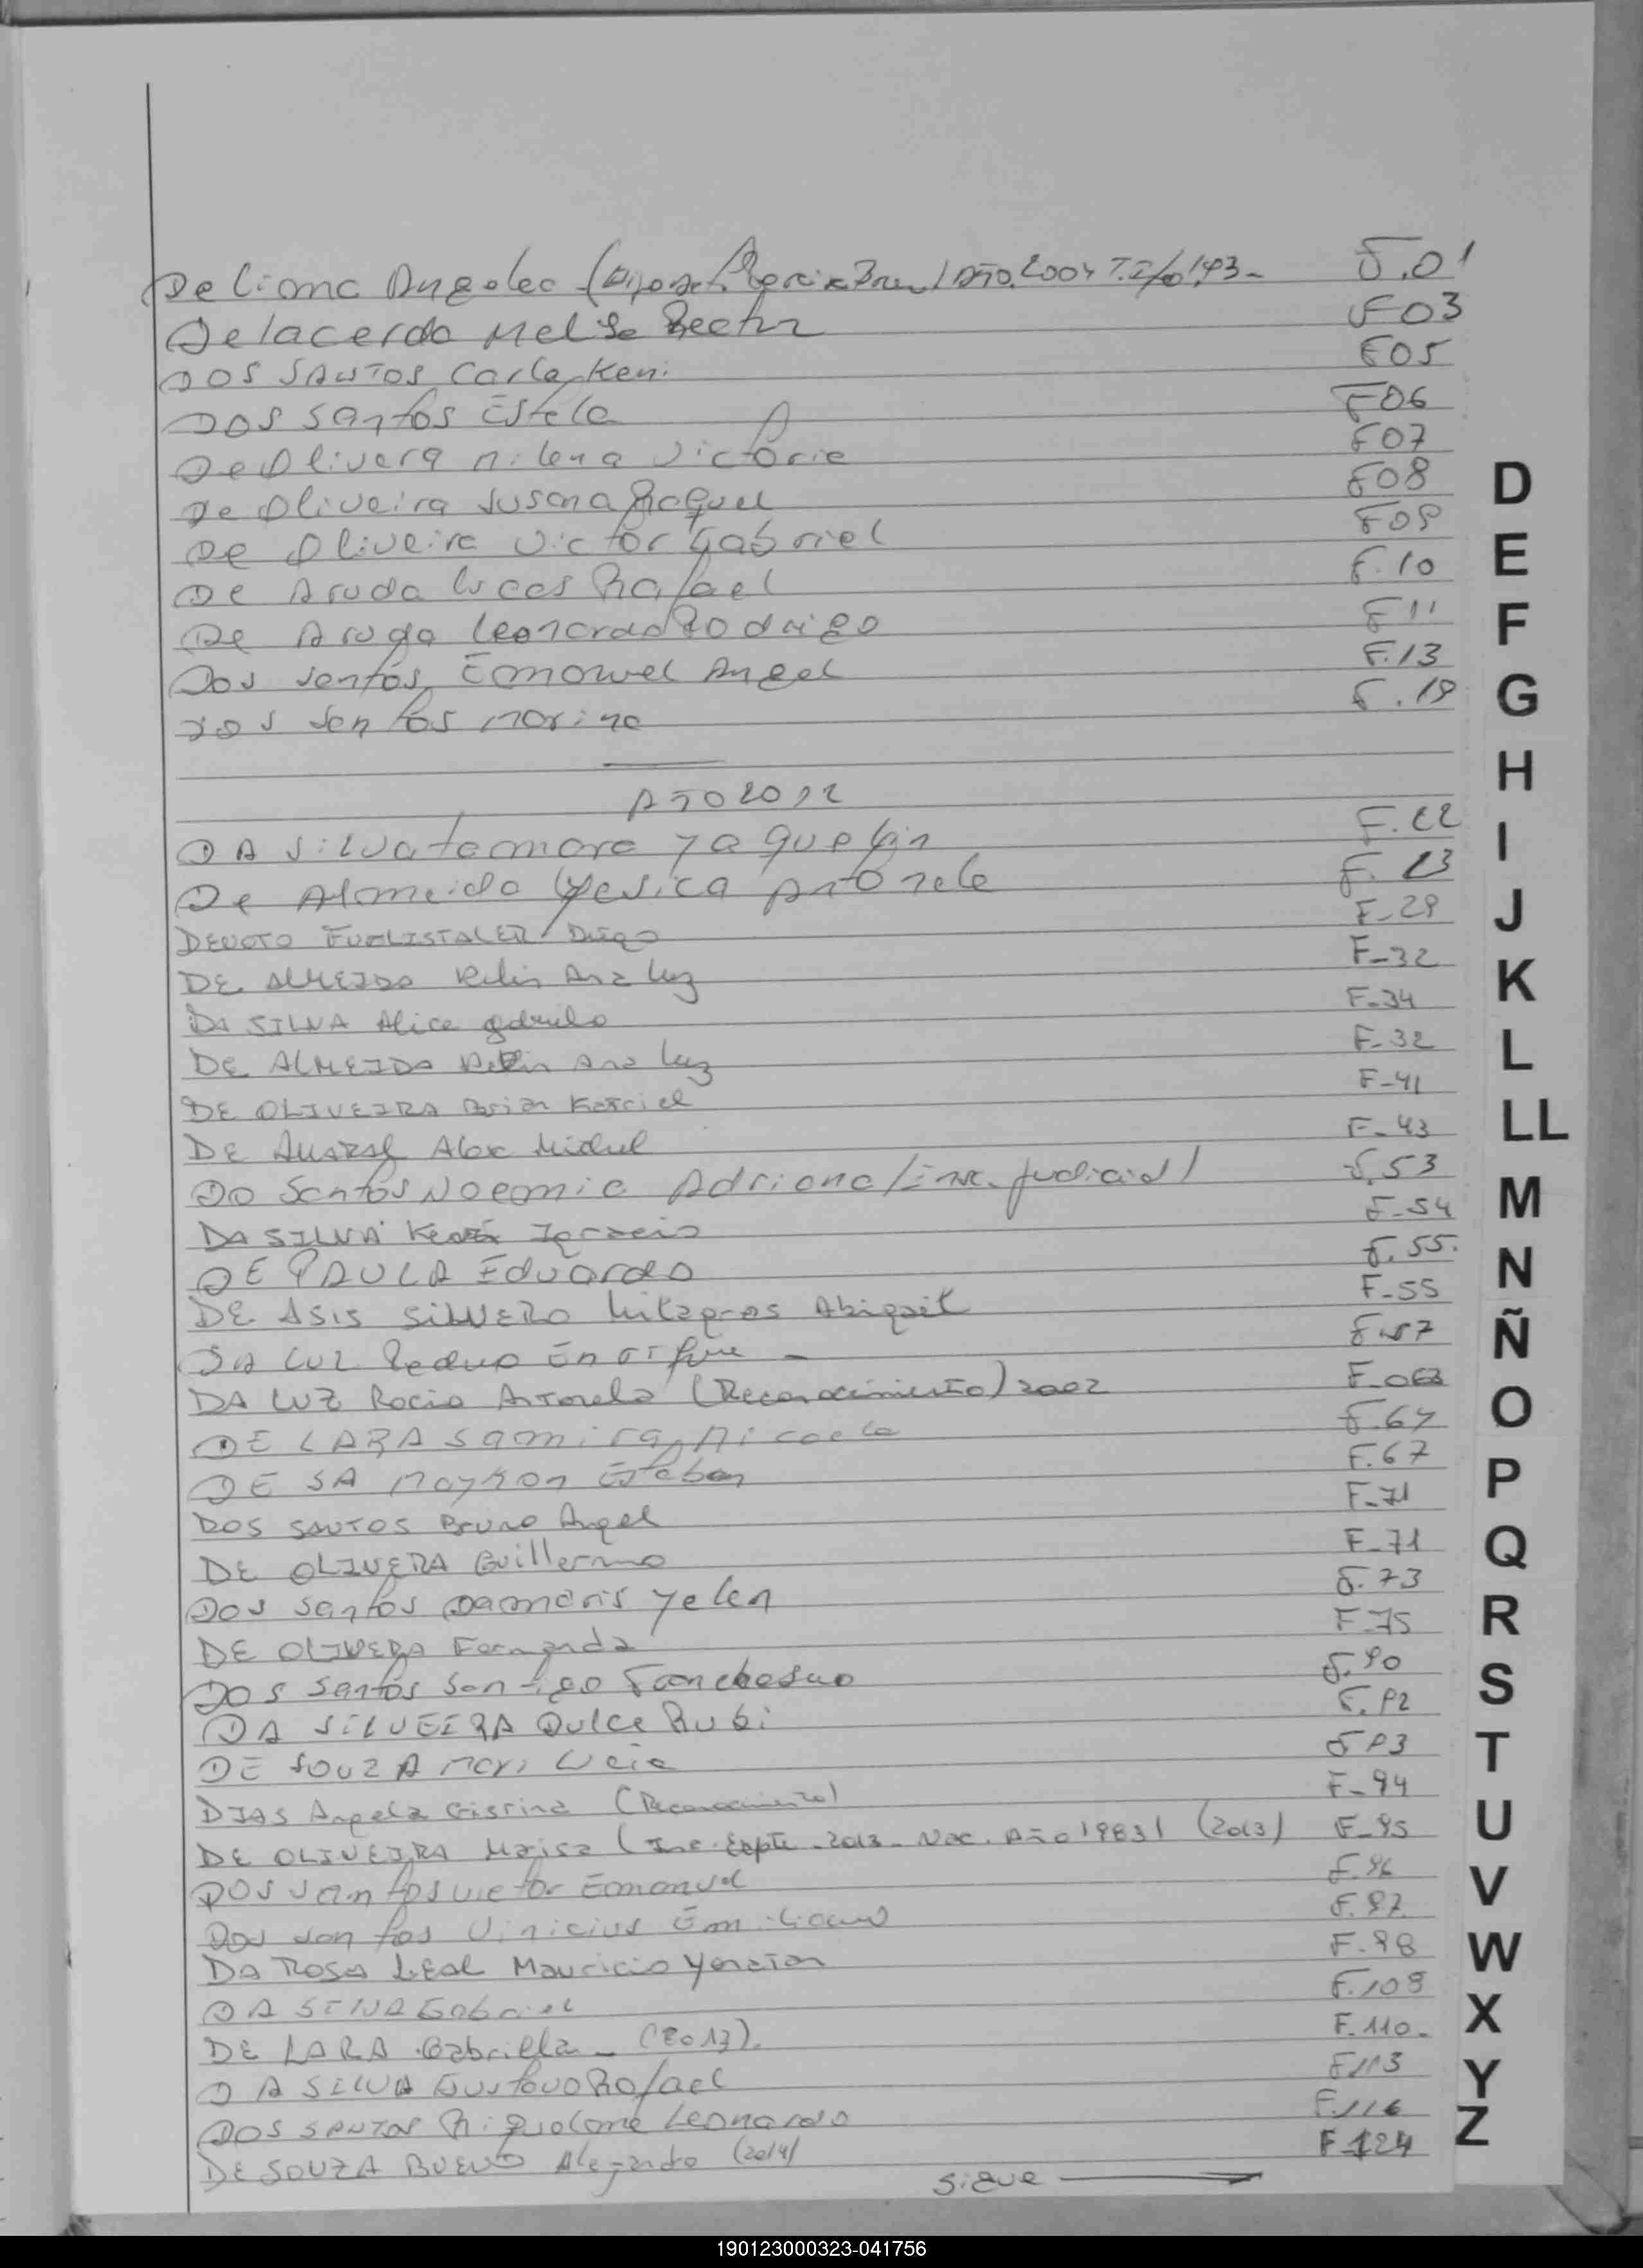 De Lima Angeles Año 2004 T.I/fo 143- F.01
Delacerda Melisa Beatriz F03
DOS SANTOS Carla Keni F05
DOS Santos Estela F06
De Olivera Milena Victoria F07
De Oliveira Susana Raquel F08
De Oliveira Victor Gabriel F09
De Aruda Lucas Rafael F.10
De Aruda Leonardo Rodrigo F11
Dos Santos Emanuel Angel F.13
Dos Santos Marina F.19
AÑO 2012
DA Silva Tamara Yaquelin F.22
De Almeida Yesica Antonela F.23
DEVOTO Diego F-29
DE ALMEIDA Ana Luz F-32
DA SILVA Alice F-34
DE ALMEIDA Ana Luz F-32
DE OLIVEIRA Brian Kassiel F-41
DE AMARAL Alex Michel F-43
DO Santos Noemia Adriana /Insc. Judicial/ F.53
DA SILVA Ignacio F-54
DE PAULA Eduardo F.55.
DE ASIS SILVERO Milagros Abigail F-55
DA LUZ Pedro Enrique - F.57
DA LUZ Rocio Antonela (Reconocimiento) 2002 F-063
DE LARA Samira Micaela F.67
DE SA Maykon Esteban F.67
DOS SANTOS Bruno Angel F-71
DE OLIVERA Guillermo F-71
DOS Santos Damaris Yelen F.73
DE OLIVERA Fernanda F-75
DOS Santos Santiago F.90
DA SILVEIRA Dulce Rubi F.92
DE SOUZA F93
DIAS Angela Cristina (Reconocimiento) F-94
DE OLIVEIRA Marisa (Insc. 2013- Nac. Año 1983) (2013) F-95
DOS Santos Victor Emanuel F.96
Dos Santos Vinicius Emiliano F.97
DA ROSA LEAL Mauricio F-98
DA SILVA Gabriel F.109
DE LARA Gabriella - (2013). F.110-
DA SILVA Gustavo Rafael F113
DOS SANTOS Leonardo F.116
DE SOUZA BUENO Alejandro (2014) F-124
Sigue
D
E
F
G
H
I
J
K
L
LL
M
N
Ñ
O
P
Q
R
S
T
U
V
W
X
Y
Z
190123000323-041756